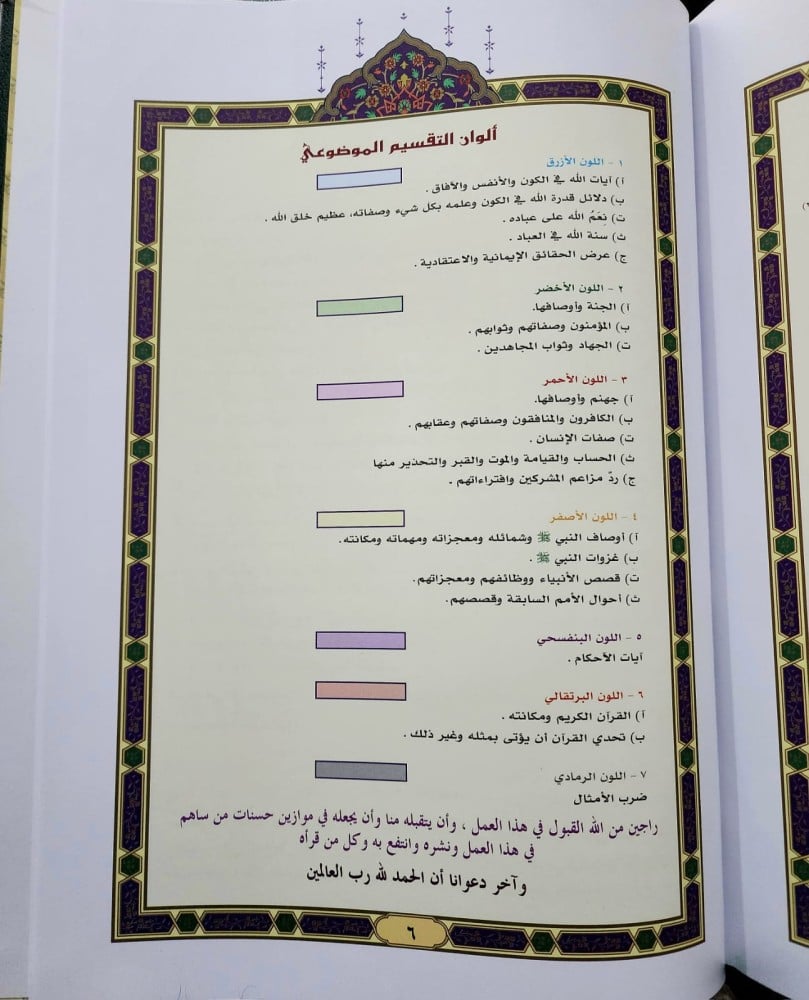 ألوان التقسيم الموضوعي
١ - اللون الأزرق
أ) آيات الله في الكون والأنفس والآفاق .
ب) دلائل قدرة الله في الكون وعلمه بكل شيء وصفاته، عظيم خلق الله .
ت) نِعَمُ الله على عباده .
ث) سنة الله في العباد .
ج) عرض الحقائق الإيمانية والاعتقادية .
٢ - اللون الأخضر
أ) الجنة وأوصافها.
ب) المؤمنون وصفاتهم وثوابهم .
ت) الجهاد وثواب المجاهدين .
٣ - اللون الأحمر
أ) جهنم وأوصافها.
ب) الكافرون والمنافقون وصفاتهم وعقابهم .
ت) صفات الإنسان .
ث) الحساب والقيامة والموت والقبر والتحذير منها
ج) ردّ مزاعم المشركين وافتراءاتهم .
٤ - اللون الأصفر
أ) أوصاف النبي ﷺ وشمائله ومعجزاته ومهماته ومكانته.
ب) غزوات النبي ﷺ .
ت) قصص الأنبياء ووظائفهم ومعجزاتهم.
ث) أحوال الأمم السابقة وقصصهم.
٥ - اللون البنفسجي
آيات الأحكام .
٦ - اللون البرتقالي
أ) القرآن الكريم ومكانته .
ب) تحدي القرآن أن يؤتى بمثله وغير ذلك .
٧ - اللون الرمادي
ضرب الأمثال
راجين من الله القبول في هذا العمل ، وأن يتقبله منا وأن يجعله في موازين حسنات من ساهم
في هذا العمل ونشره وانتفع به وكل من قرأه
وآخر دعوانا أن الحمد لله رب العالمين
٦